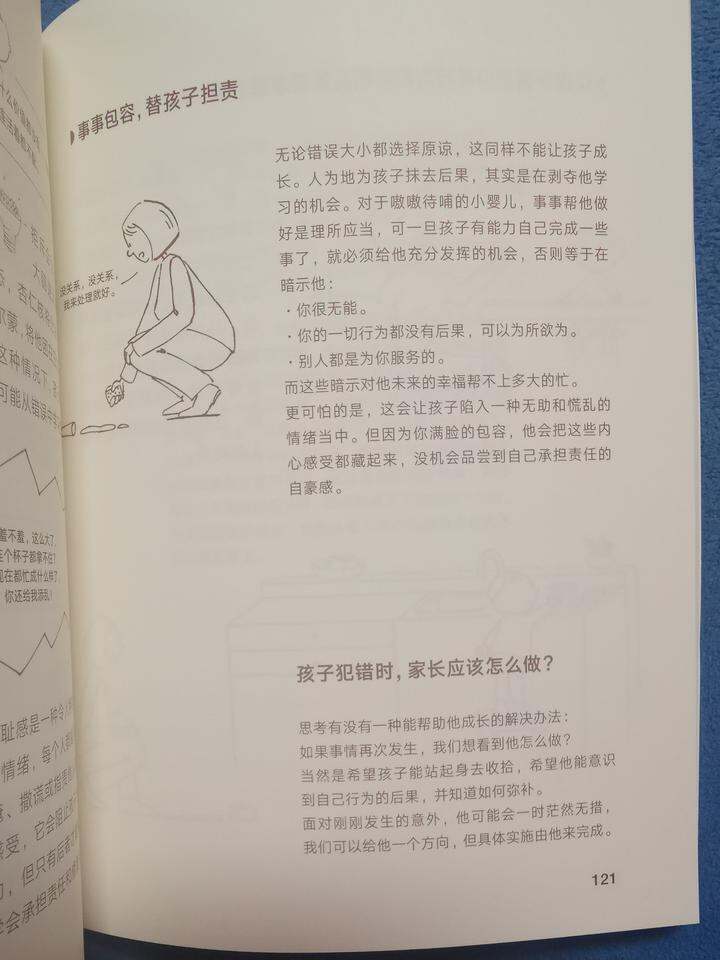 什么价值都没
大题
态，杏仁核将
尔蒙，将他困在
这种情况下，
可能从错误中
羞不羞，这么大了，
连个杯子都拿不住？
现在都忙成什么样了，
你还给我添乱！
耻感是一种令人
情绪，每个人
撒谎或指责
感受，它会阻止
，但只有后者
学会承担责任和
事事包容，替孩子担责
没关系，没关系，
我来处理就好。
无论错误大小都选择原谅，这同样不能让孩子成
长。人为地为孩子抹去后果，其实是在剥夺他学
习的机会。对于嗷嗷待哺的小婴儿，事事帮他做
好是理所应当，可一旦孩子有能力自己完成一些
事了，就必须给他充分发挥的机会，否则等于在
暗示他：
·你很无能。
·你的一切行为都没有后果，可以为所欲为。
·别人都是为你服务的。
而这些暗示对他未来的幸福帮不上多大的忙。
更可怕的是，这会让孩子陷入一种无助和慌乱的
情绪当中。但因为你满脸的包容，他会把这些内
心感受都藏起来，没机会品尝到自己承担责任的
自豪感。
孩子犯错时，家长应该怎么做？
思考有没有一种能帮助他成长的解决办法：
如果事情再次发生，我们想看到他怎么做？
当然是希望孩子能站起身去收拾，希望他能意识
到自己行为的后果，并知道如何弥补。
面对刚刚发生的意外，他可能会一时茫然无措，
我们可以给他一个方向，但具体实施由他来完成。
121